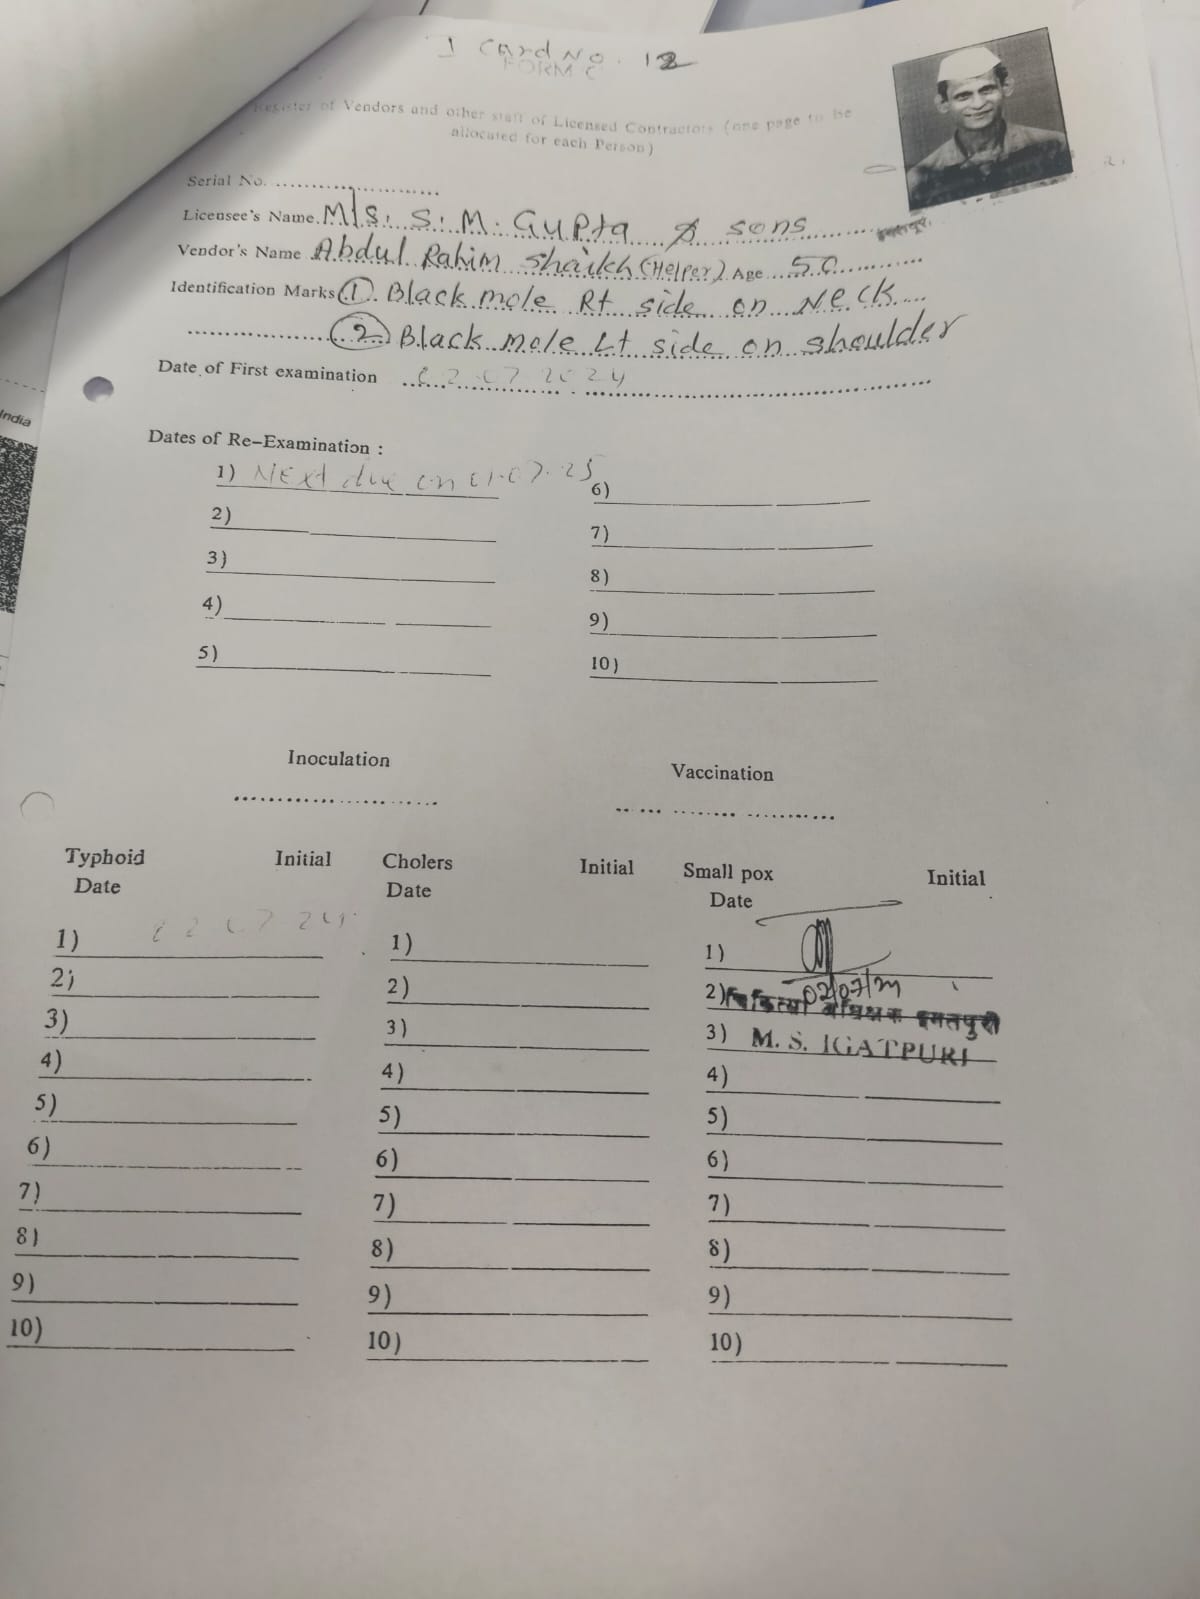 I Card No. 12
FORM C
Register of Vendors and other staff of Licensed Contractors (one page to be
allocated for each Person)
Serial No. ........................
Licensee's Name. M/s. S. M. Gupta & sons
Vendor's Name Abdul Rahim Shaikh (Helper) Age 50
Identification Marks (1). Black mole Rt side on Neck
(2) Black mole Lt side on shoulder
Date of First examination 02 07 2024
Dates of Re-Examination :
1) Next due on 01.07.25
6)
2)
7)
3)
8)
4)
9)
5)
10)
Inoculation
Vaccination
Typhoid Initial Cholers Initial Small pox Initial
Date Date Date
1) 02 07 24 1) 1)
02/07/24
2) 2) 2) चिकित्सा अधिक्षक इगतपुरी
3) 3) 3) M. S. IGATPURI
4) 4) 4)
5) 5) 5)
6) 6) 6)
7) 7) 7)
8) 8) 8)
9) 9) 9)
10) 10) 10)
India